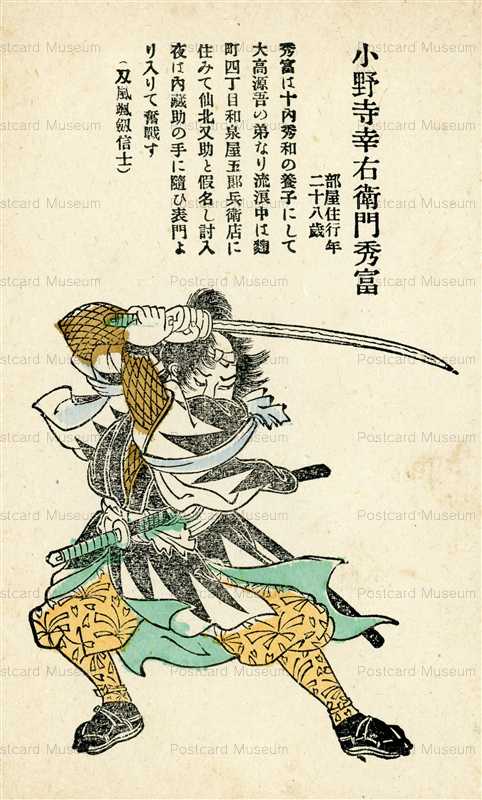 小野寺幸右衛門秀富
部屋住行年
二十八歳
秀富は十内秀和の養子にして
大高源吾の弟なり流浪中は麹
町四丁目和泉屋五郎兵衛店に
住みて仙北又助と假名し討入
夜は內藏助の手に隨ひ表門よ
り入りて奮戰す
(刃風颯劔信士)
Postcard Museum